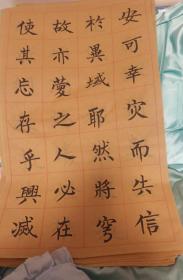 安可幸灾而失信
於異域耶然將穹
故亦夢之人必在
使其忘存乎興滅